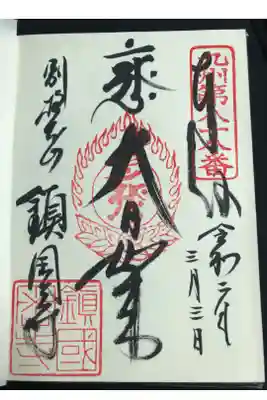 九州第八十八番
奉拝
令和二年
三月三日
大日如来
屏風山
鎮国寺
鎮國